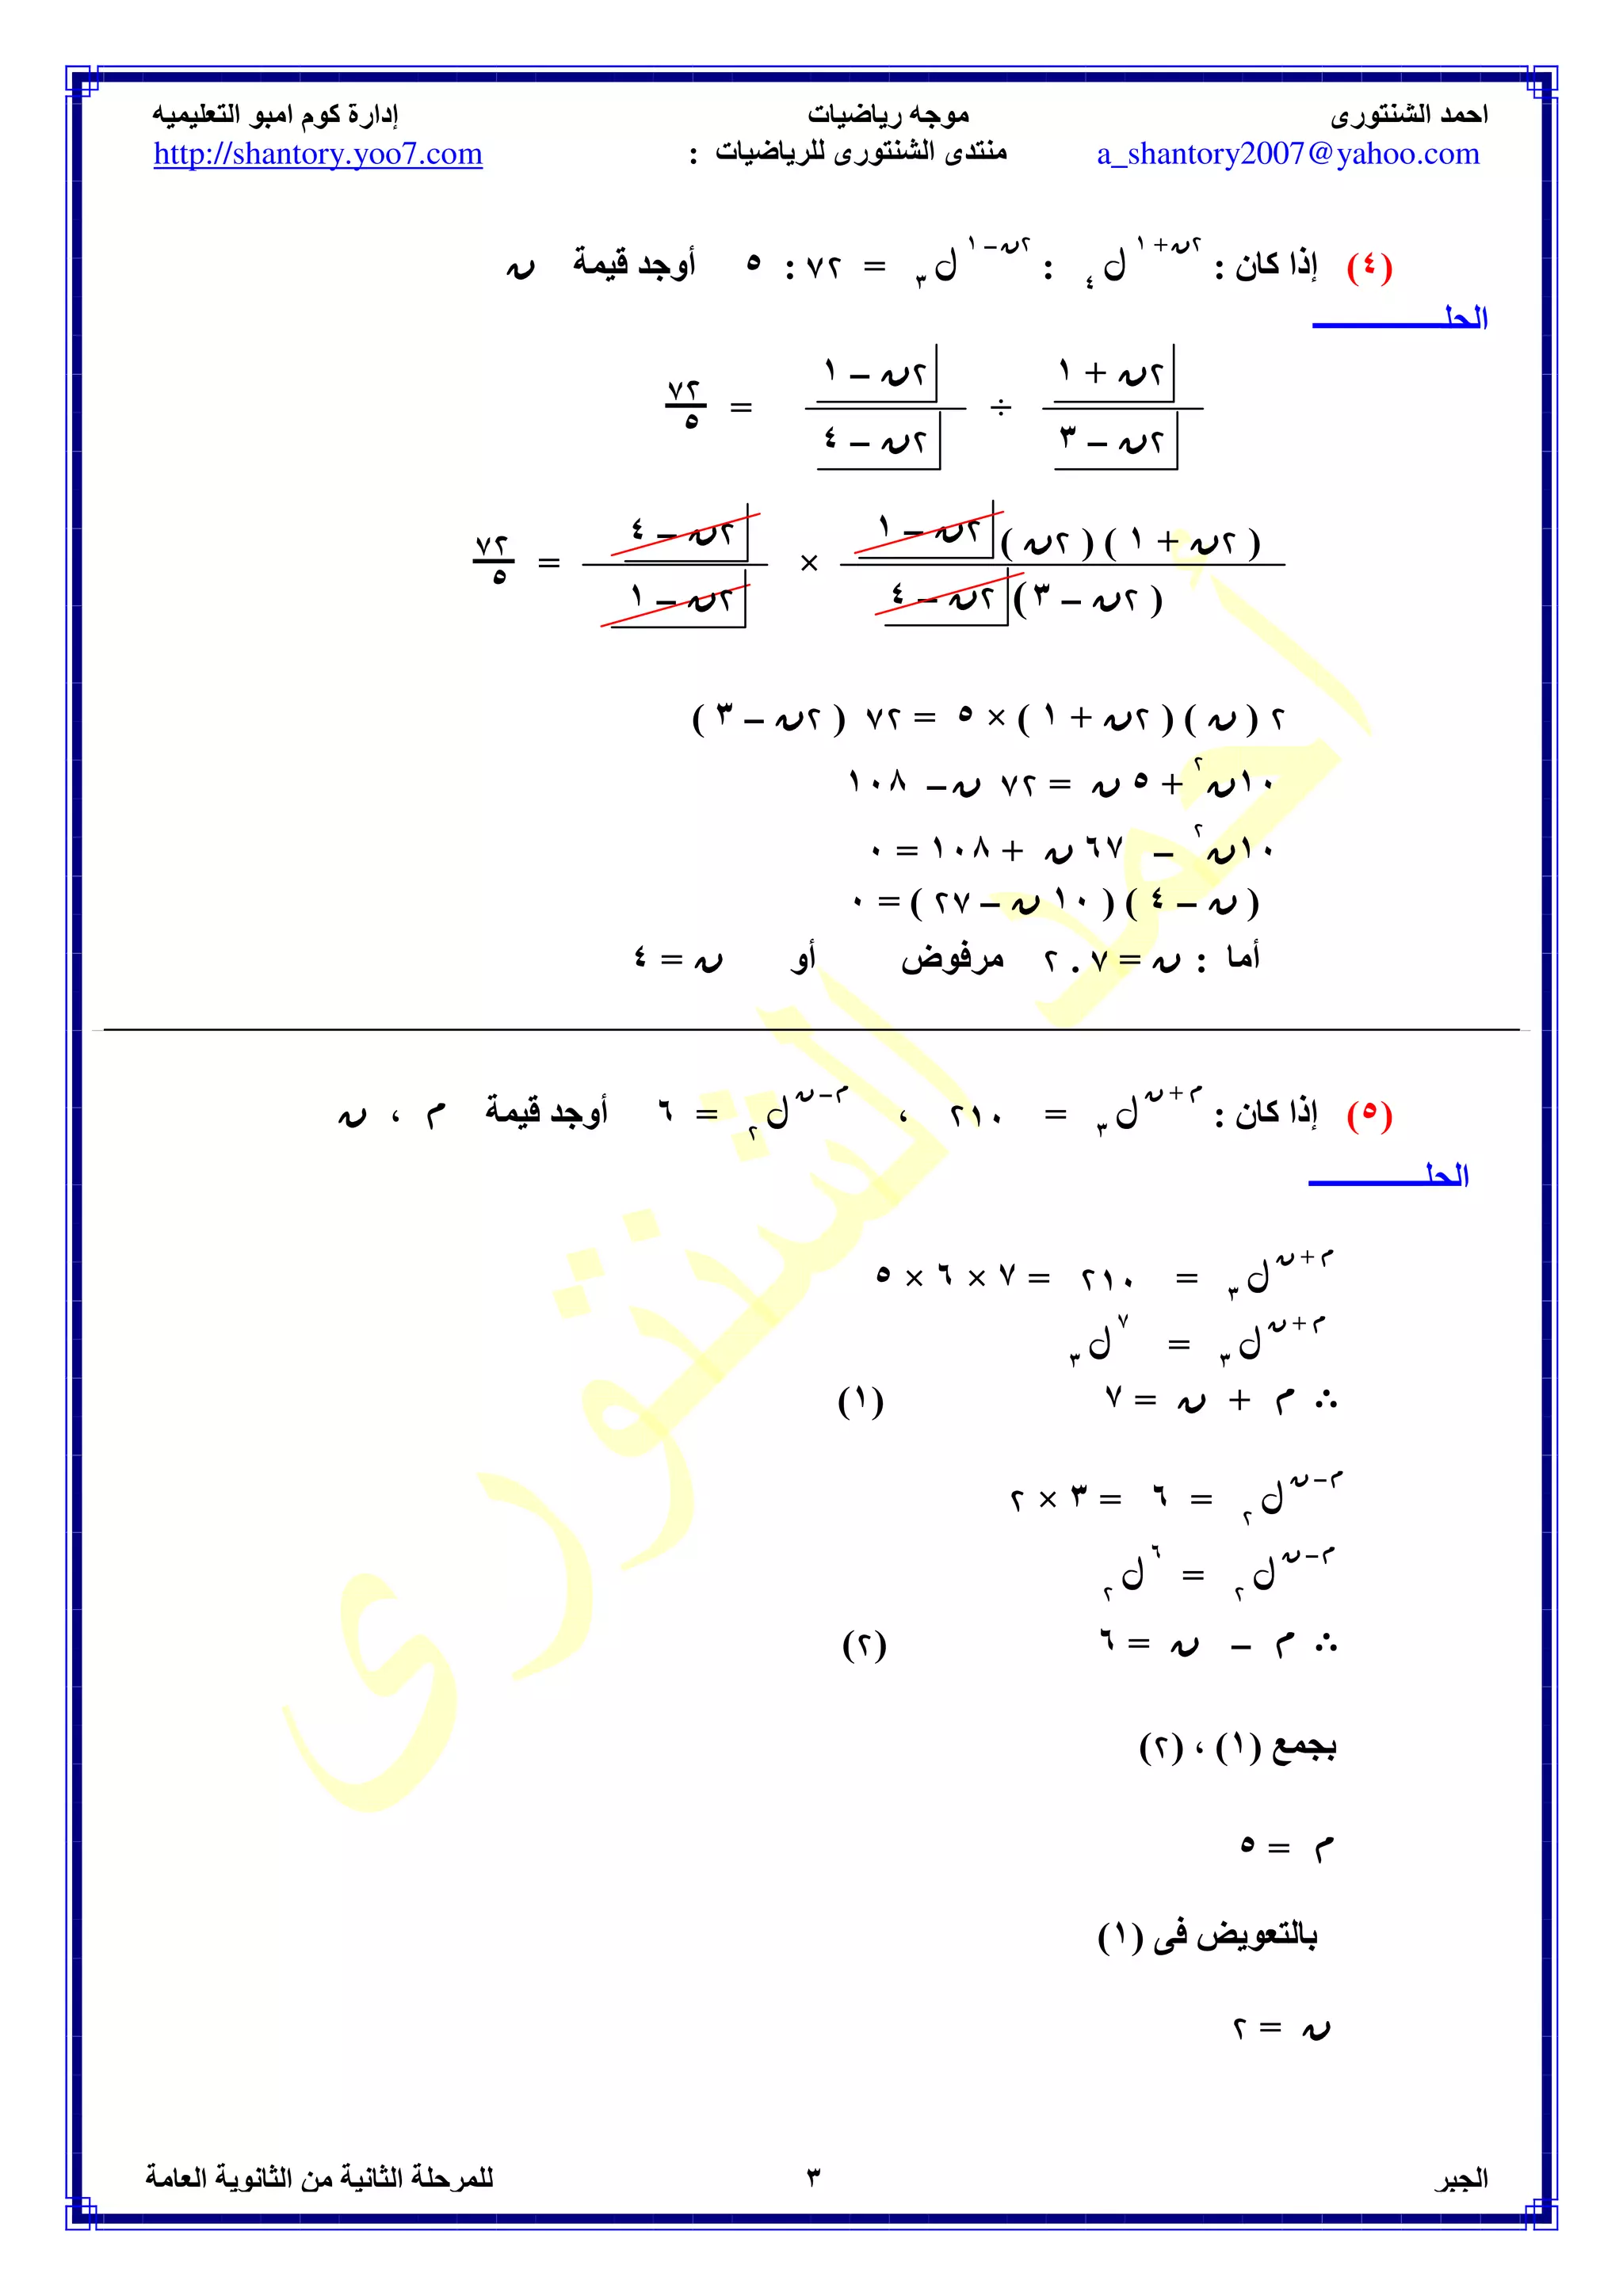 احمد الشنتورى موجه رياضيات إدارة كوم امبو التعليميه
a_shantory2007@yahoo.com منتدى الشنتورى للرياضيات : http://shantory.yoo7.com
(٤) إذا كان : ٢ن + ١ ل ٤ : ٢ن – ١ ل ٣ = ٧٢ : ٥ أوجد قيمة ن
الحلـــــــــــــــــ
٢ن + ١ ٢ن – ١ ٧٢
÷ =
٢ن – ٣ ٢ن – ٤ ٥
( ٢ن + ١ ) ( ٢ن ) ٢ن – ١ ٢ن – ٤ ٧٢
× =
( ٢ن – ٣ ) ٢ن – ٤ ٢ن – ١ ٥
٢ ( ن ) ( ٢ن + ١ ) × ٥ = ٧٢ ( ٢ن – ٣ )
١٠ن٢ + ٥ ن = ٧٢ ن – ١٠٨
١٠ن٢ – ٦٧ ن + ١٠٨ = ٠
( ن – ٤ ) ( ١٠ ن – ٢٧ ) = ٠
أما : ن = ٧ . ٢ مرفوض أو ن = ٤
(٥) إذا كان : م + ن ل ٣ = ٢١٠ ، م – ن ل ٢ = ٦ أوجد قيمة م ، ن
الحلـــــــــــــــــ
م + ن ل ٣ = ٢١٠ = ٧ × ٦ × ٥
م + ن ل ٣ = ٧ ل ٣
∴ م + ن = ٧ (١)
م – ن ل ٢ = ٦ = ٣ × ٢
م – ن ل ٢ = ٦ ل ٢
∴ م – ن = ٦ (٢)
بجمع (١) ، (٢)
م = ٥
بالتعويض فى (١)
ن = ٢
الجبر ٣ للمرحلة الثانية من الثانوية العامة
أحمد الشنتورى